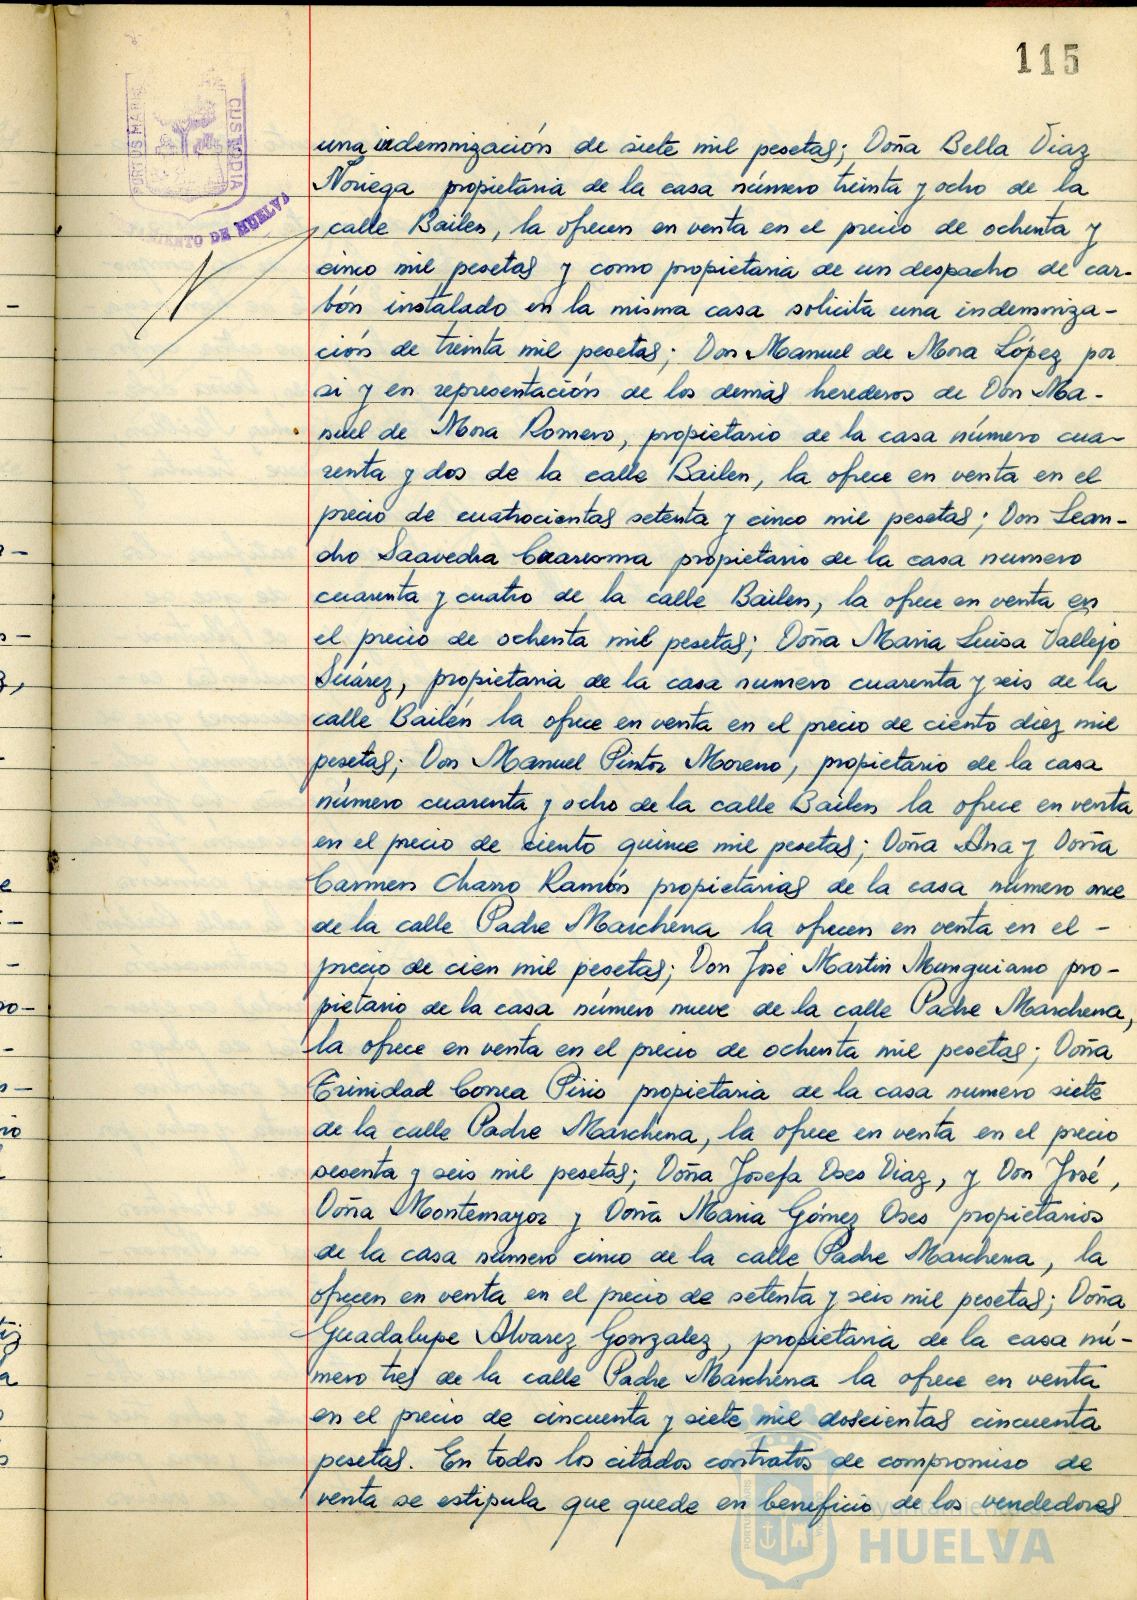 115
PORTUS MARIS
CUSTODIA
DE HUELVA
una indemnización de siete mil pesetas; Doña Bella Diaz
Noriega propietaria de la casa número treinta y ocho de la
calle Bailen, la ofrecen en venta en el precio de ochenta y
cinco mil pesetas y como propietaria de un despacho de car-
bón instalado en la misma casa solicita una indemniza-
ción de treinta mil pesetas; Don Manuel de Mora López por
si y en representación de los demás herederos de Don Ma-
nuel de Mora Romero, propietario de la casa número cua-
renta y dos de la calle Bailen, la ofrece en venta en el
precio de cuatrocientas setenta y cinco mil pesetas; Don Lean-
dro Saavedra Cuaresma propietario de la casa numero
cuarenta y cuatro de la calle Bailen, la ofrece en venta en
el precio de ochenta mil pesetas; Doña Maria Luisa Vallejo
Suárez, propietaria de la casa numero cuarenta y seis de la
calle Bailén la ofrece en venta en el precio de ciento diez mil
pesetas; Don Manuel Pintor Moreno, propietario de la casa
número cuarenta y ocho de la calle Bailen la ofrece en venta
en el precio de ciento quince mil pesetas; Doña Ana y Doña
Carmen Charro Ramón propietarias de la casa número once
de la calle Padre Marchena la ofrecen en venta en el -
precio de cien mil pesetas; Don José Martin Munguiano pro-
pietario de la casa número nueve de la calle Padre Marchena,
la ofrece en venta en el precio de ochenta mil pesetas; Doña
Trinidad Correa Piris propietaria de la casa numero siete
de la calle Padre Marchena, la ofrece en venta en el precio
sesenta y seis mil pesetas; Doña Josefa Oses Diaz, y Don José,
Doña Montemayor y Doña Maria Gómez Oses propietarios
de la casa número cinco de la calle Padre Marchena, la
ofrecen en venta en el precio de setenta y seis mil pesetas; Doña
Guadalupe Alvarez Gonzalez, propietaria de la casa nú-
mero tres de la calle Padre Marchena la ofrece en venta
en el precio de cincuenta y siete mil doscientas cincuenta
pesetas. En todos los citados contratos de compromiso de
venta se estipula que quede en beneficio de los vendedores
HUELVA